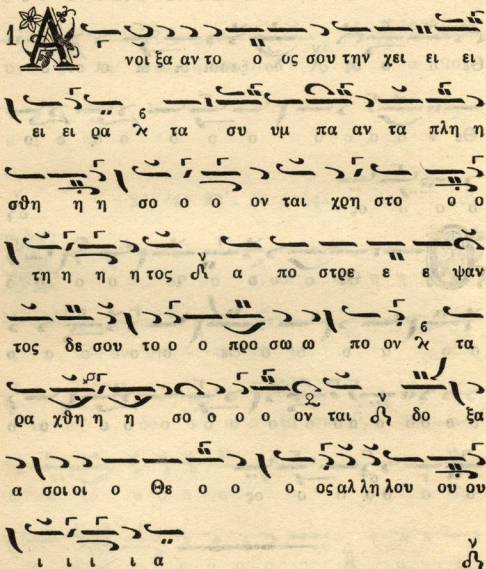 1 Α νοι ξα αν το ο ος σου την χει ει ει
ει ει ρα τα συ υμ πα αν τα πλη η
σθη η η σο ο ο ον ται χρη στο ο ο
τη η η η τος α πο στρε ε ε ψαν
τος δε σου το ο ο προ σω ω πο ον τα
ρα χθη η η σο ο ο ο ον ται δο ξα
α σοι οι ο Θε ο ο ο ος αλ λη λου ου ου
ι ι ι ι α